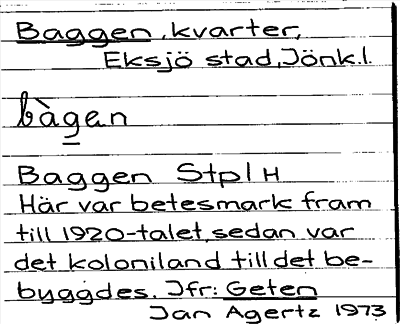 Baggen, kvarter,
Eksjö stad, Jönk.l.
bàgen
Baggen Stpl H
Här var betesmark fram
till 1920-talet, sedan var
det koloniland till det be-
byggdes. Jfr: Geten
Jan Agertz 1973